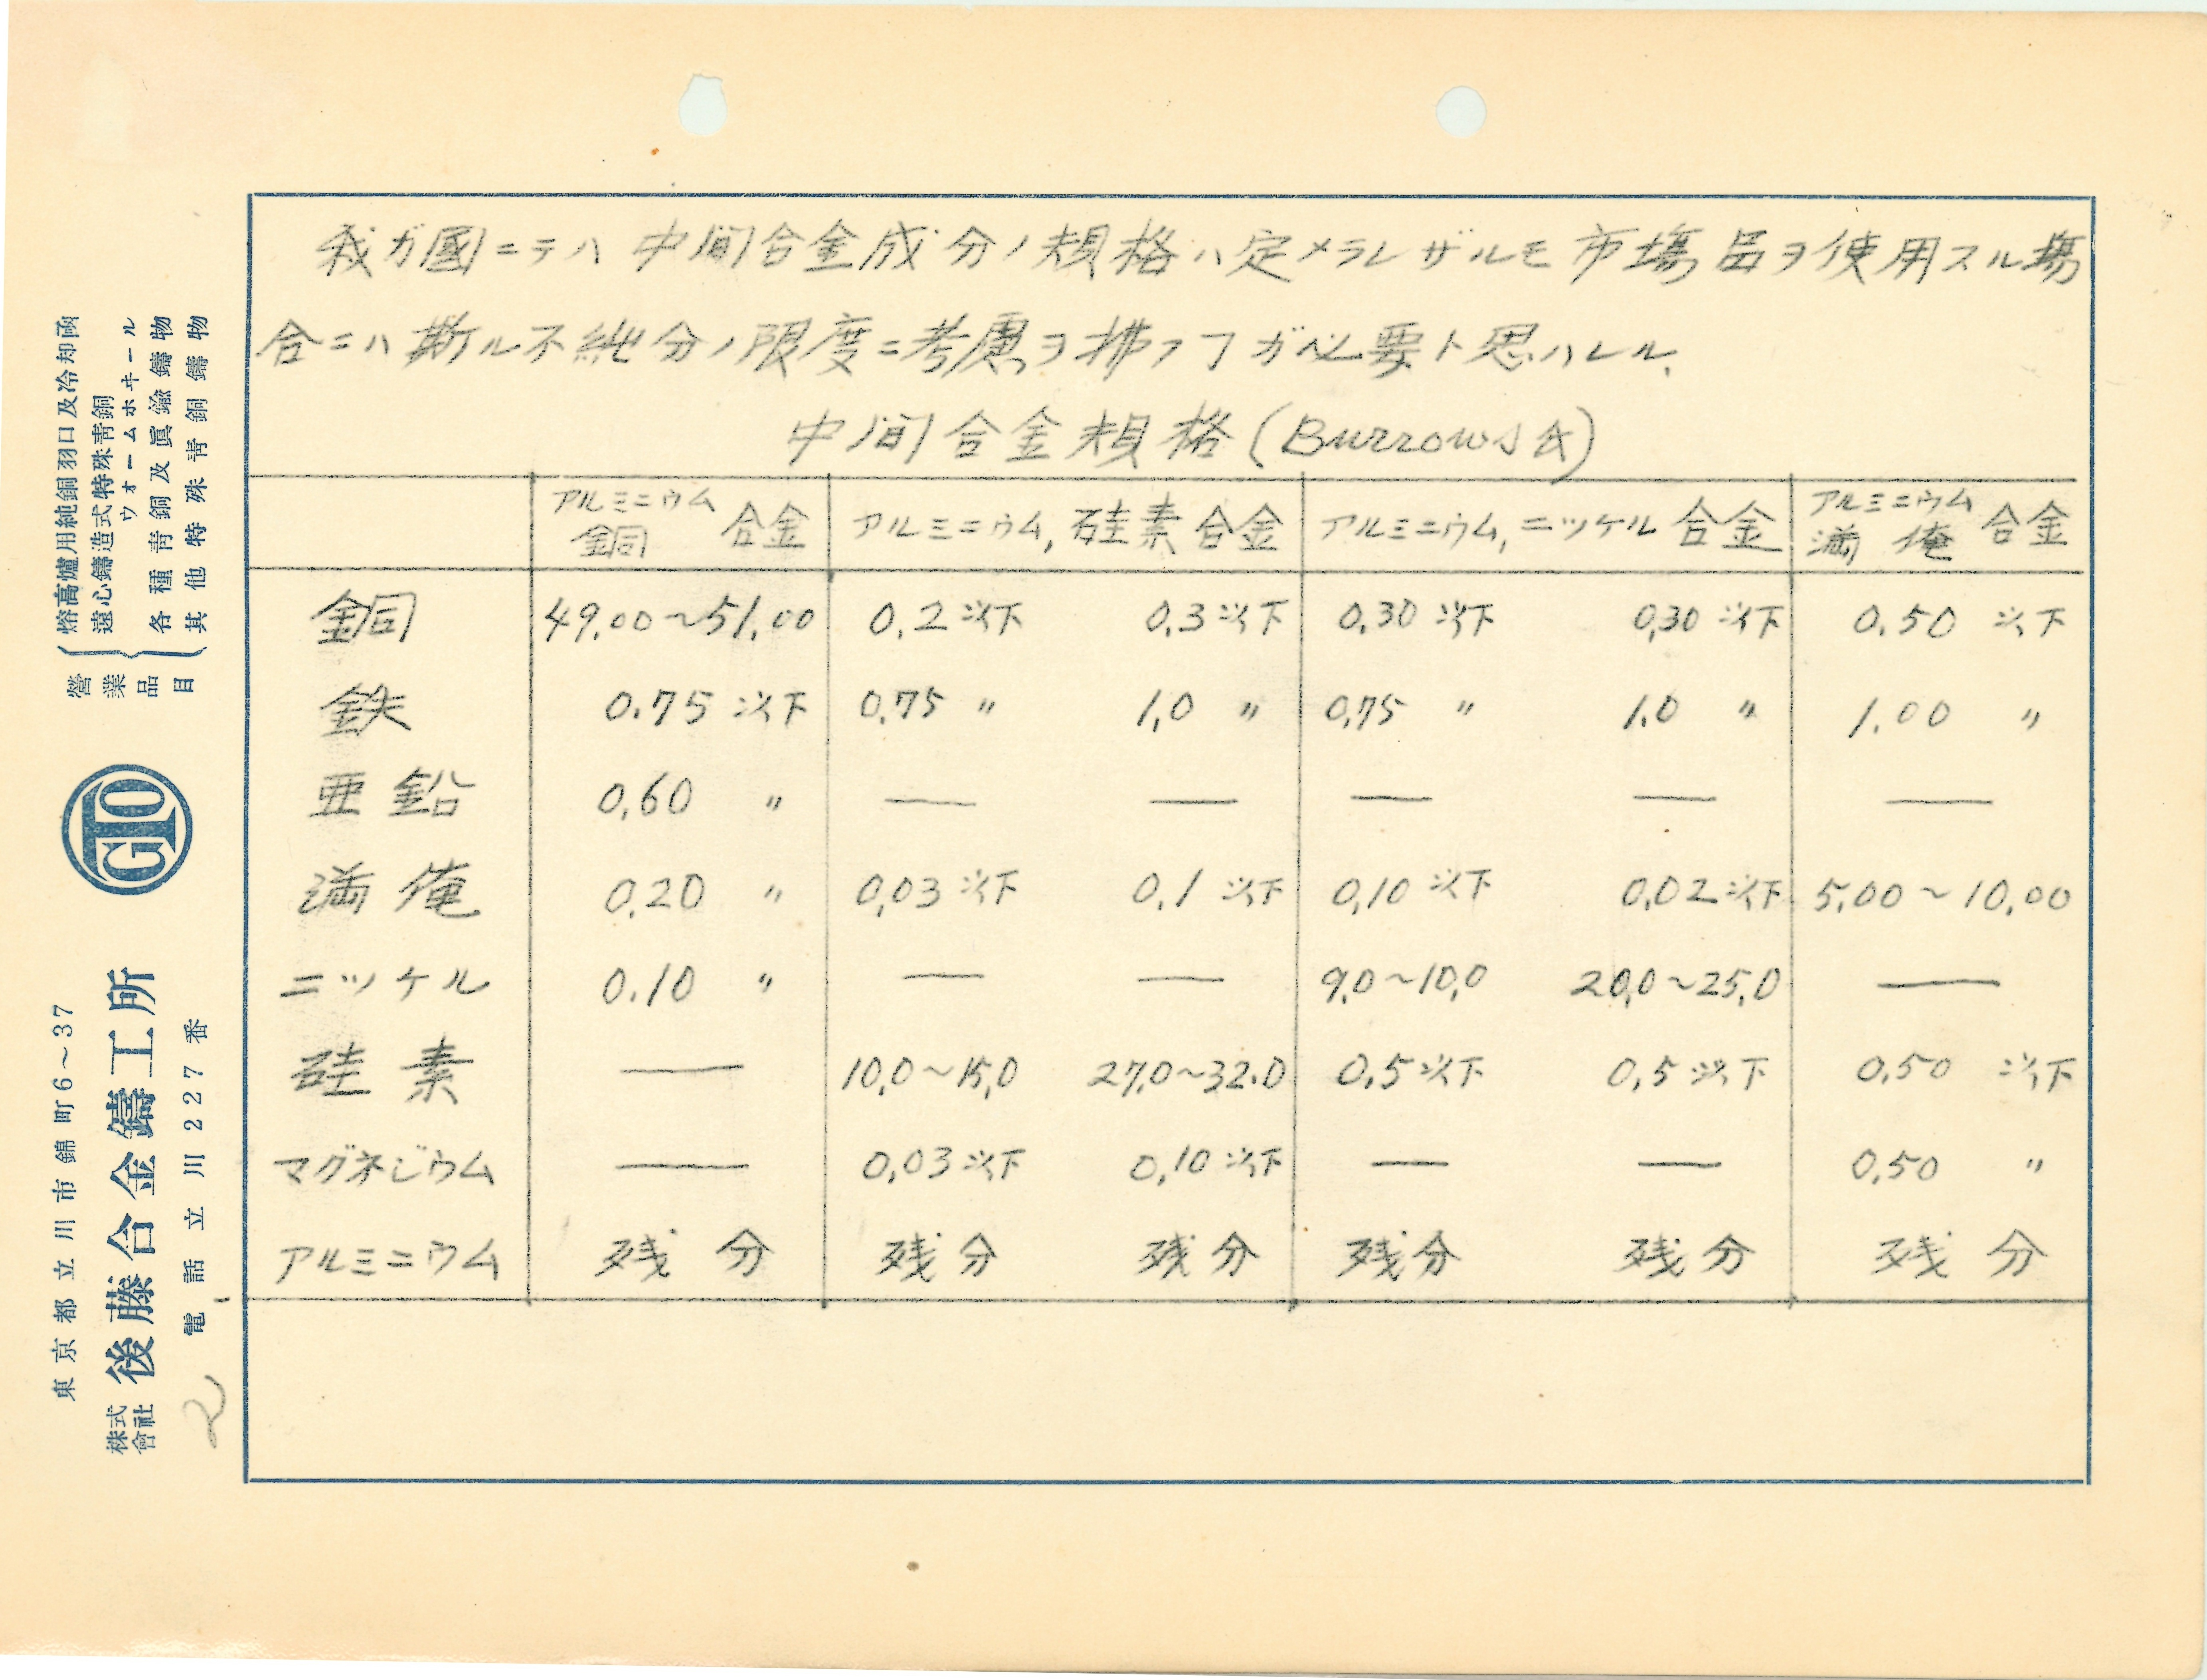 我ガ國ニテハ中間合金成分ノ規格ハ定メラレザルモ市場品ヲ使用スル場
合ニハ斯ル不純分ノ限度ニ考慮ヲ拂フヿガ必要ト思ハレル、
中間合金規格(Burrows氏)
アルミニウム銅合金 アルミニウム,硅素合金 アルミニウム,ニッケル合金 アルミニウム満俺合金
銅 49.00~51.00 0.2以下 0.3以下 0.30以下 0.30以下 0.50以下
鉄 0.75以下 0.75〃 1.0〃 0.75〃 1.0〃 1.00〃
亜鉛 0.60〃 — — — — —
満俺 0.20〃 0.03以下 0.1以下 0.10以下 0.02以下 5.00~10.00
ニッケル 0.10〃 — — 9.0~10.0 20.0~25.0 —
硅素 — 10.0~15.0 27.0~32.0 0.5以下 0.5以下 0.50以下
マグネジウム — 0.03以下 0.10以下 — — 0.50〃
アルミニウム 残分 残分 残分 残分 残分 残分
營業品目
熔高爐用純銅羽口及冷却函
遠心鑄造式特殊青銅
ウォームホヰール
各種青銅及眞鍮鑄物
其他特殊青銅鑄物
GTO
東京都立川市錦町6~37
株式會社 後藤合金鑄工所
電話立川227番
2